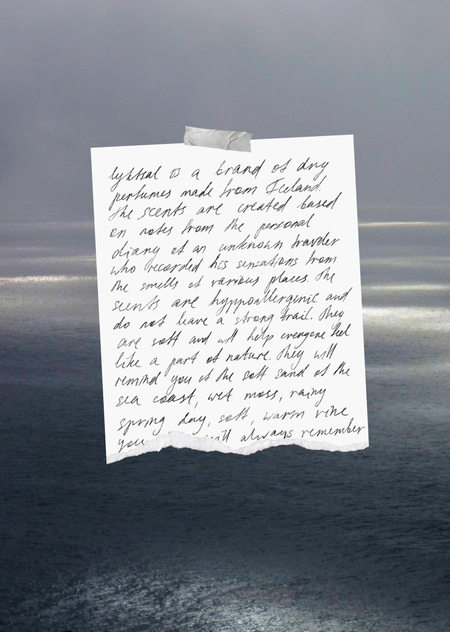 is a brand of dry
perfumes made from Iceland.
The scents are created based
on notes from the personal
diary of an unknown traveler
who recorded his sensations from
the smells of various places. The
scents are hyppoallergenic and
do not leave a strong trail. They
are soft and will help everyone feel
like a part of nature. They will
remind you of the soft sand of the
sea coast, wet moss, rainy
spring day, soft, warm
you will always remember